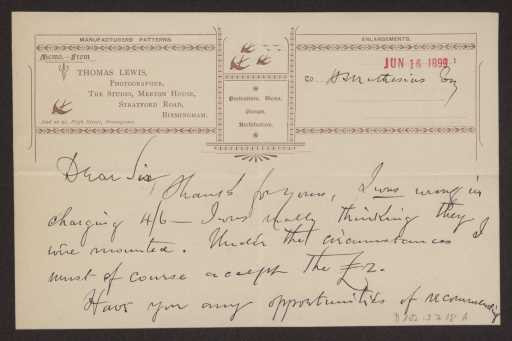 MANUFACTURERS' PATTERNS.
ENLARGEMENTS.
Memo. from
THOMAS LEWIS,
PHOTOGRAPHER,
THE STUDIO, MERTON HOUSE,
STRATFORD ROAD,
BIRMINGHAM.
And at High Street,
Portraiture, Views,
Groups,
Architecture.
JUN 16 1899
to H Muthesius Esq
Dear Sir,
Thanks for yours, I was wrong in
charging 4/6 — I was really thinking they
were mounted. Under the circumstances I
must of course accept the £2.
Have you any opportunities of recommending